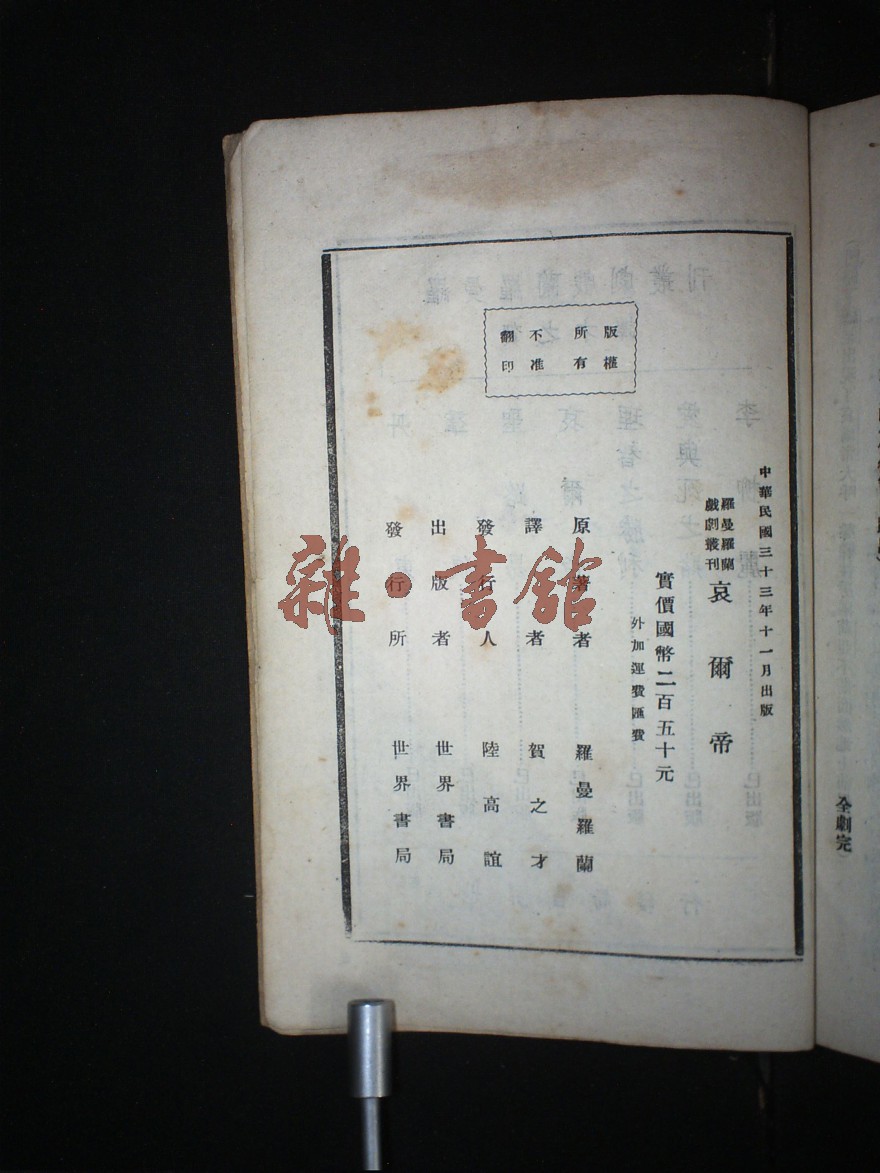 全劇完
版權
所有
不准
翻印
中華民國三十三年十一月出版
羅曼羅蘭
戲劇叢刊
哀爾帝
實價國幣二百五十元
外加運費匯費
原著者 羅曼羅蘭
譯者 賀之才
發行人 陸高誼
出版者 世界書局
發行所 世界書局
雜·書館